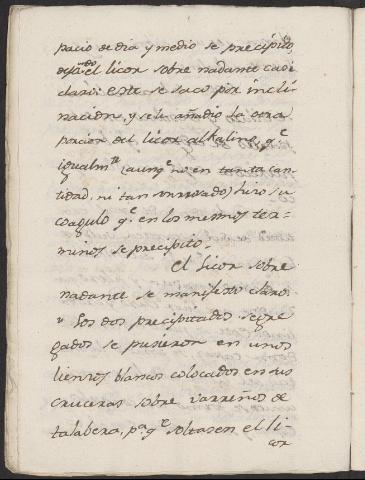 pacio de dia y medio se precipitó,
dejando el licor sobre nadante casi
claro: este se saco por incli-
nacion, y se le añadio la otra
porcion del licor alkalino, q.e
igualm.te (aunq.e no en tanta can-
tidad, ni tan) hizo su
coagulo q.e en los mesmos ter-
minos se precipito.
El licor sobre
nadante se manifesto claro.
Los dos precipitados segre
gados se pusieron en unos
lienzos blancos colocados en sus
cruceras sobre varreños de
talabera, p.a q.e soltasen el li-
cor